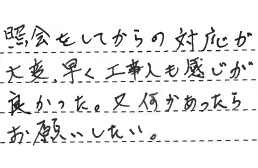 照会をしてからの対応が
大変、早く工事人も感じが
良かった。又何かあったら
お願いしたい。